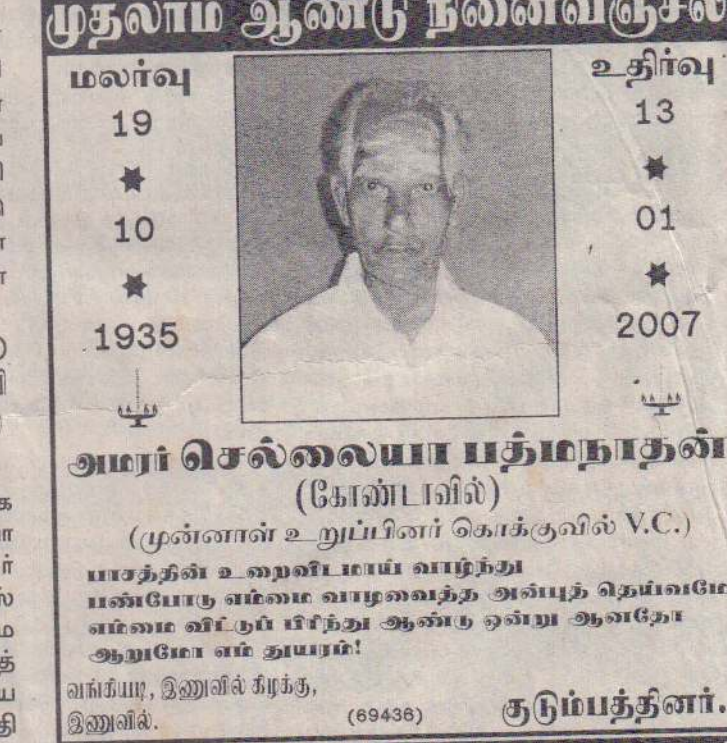 முதலாம் ஆண்டு நினைவஞ்சலி
மலர்வு
19
10
1935
உதிர்வு
13
01
2007
அமரர் செல்லையா பத்மநாதன்
(கோண்டாவில்)
(முன்னாள் உறுப்பினர் கொக்குவில் V.C.)
பாசத்தின் உறைவிடமாய் வாழ்ந்து
பண்போடு எம்மை வாழவைத்த அன்புத் தெய்வமே
எம்மை விட்டுப் பிரிந்து ஆண்டு ஒன்று ஆனதோ
ஆறுமோ எம் துயரம்!
வங்கியடி, இணுவில் கிழக்கு,
இணுவில்.
(69436)
குடும்பத்தினர்.